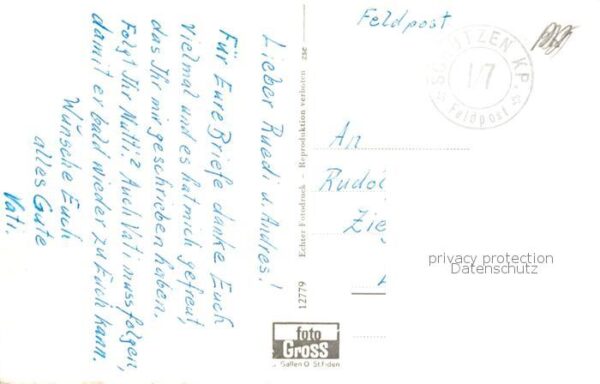 Feldpost
SCHÜTZEN KP.
1/7
Feldpost
Lieber Ruedi u. Andres!
Für Eure Briefe danke Euch
Vielmal und es hat mich gefreut,
das Ihr mir geschrieben haben.
Folgt Ihr Mutti? Auch Vati muss folgen,
damit er bald wieder zu Euch kann.
Wünsche Euch
alles Gute
Vati.
An
Zie
12779 Echter Fotodruck - Reproduktion verboten zse
foto
Gross
Gallen O St Fiden
privacy protection
Datenschutz